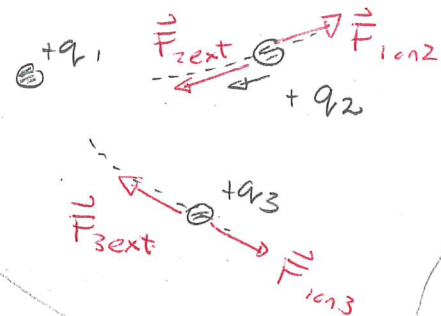 +q₁
F⃗₂ext
F⃗₁on2
+q₂
+q₃
F⃗₃ext
F⃗₁on3